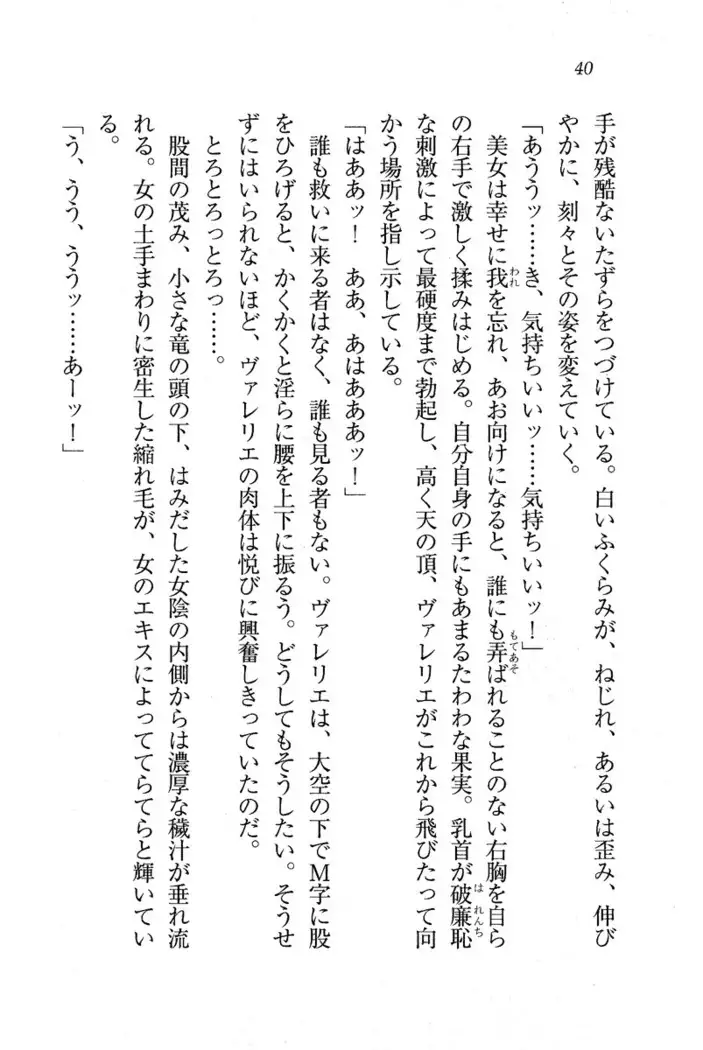 40
手が残酷ないたずらをつづけている。白いふくらみが、ねじれ、あるいは歪み、伸び
やかに、刻々とその姿を変えていく。
「あううッ……き、気持ちいいッ……気持ちいいッ！」
われ
もてあそ
　美女は幸せに我を忘れ、あお向けになると、誰にも弄ばれることのない右胸を自ら
はれんち
の右手で激しく揉みはじめる。自分自身の手にもあまるたわわな果実。乳首が破廉恥
な刺激によって最硬度まで勃起し、高く天の頂、ヴァレリエがこれから飛びたって向
かう場所を指し示している。
「はああッ！　ああ、あはあああッ！」
　誰も救いに来る者はなく、誰も見る者もない。ヴァレリエは、大空の下でM字に股
をひろげると、かくかくと淫らに腰を上下に振るう。どうしてもそうしたい。そうせ
ずにはいられないほど、ヴァレリエの肉体は悦びに興奮しきっていたのだ。
　とろとろっとろっ……。
　股間の茂み、小さな竜の頭の下、はみだした女陰の内側からは濃厚な穢汁が垂れ流
れる。女の土手まわりに密生した縮れ毛が、女のエキスによっててらてらと輝いてい
る。
「う、うう、ううッ……あーッ！」